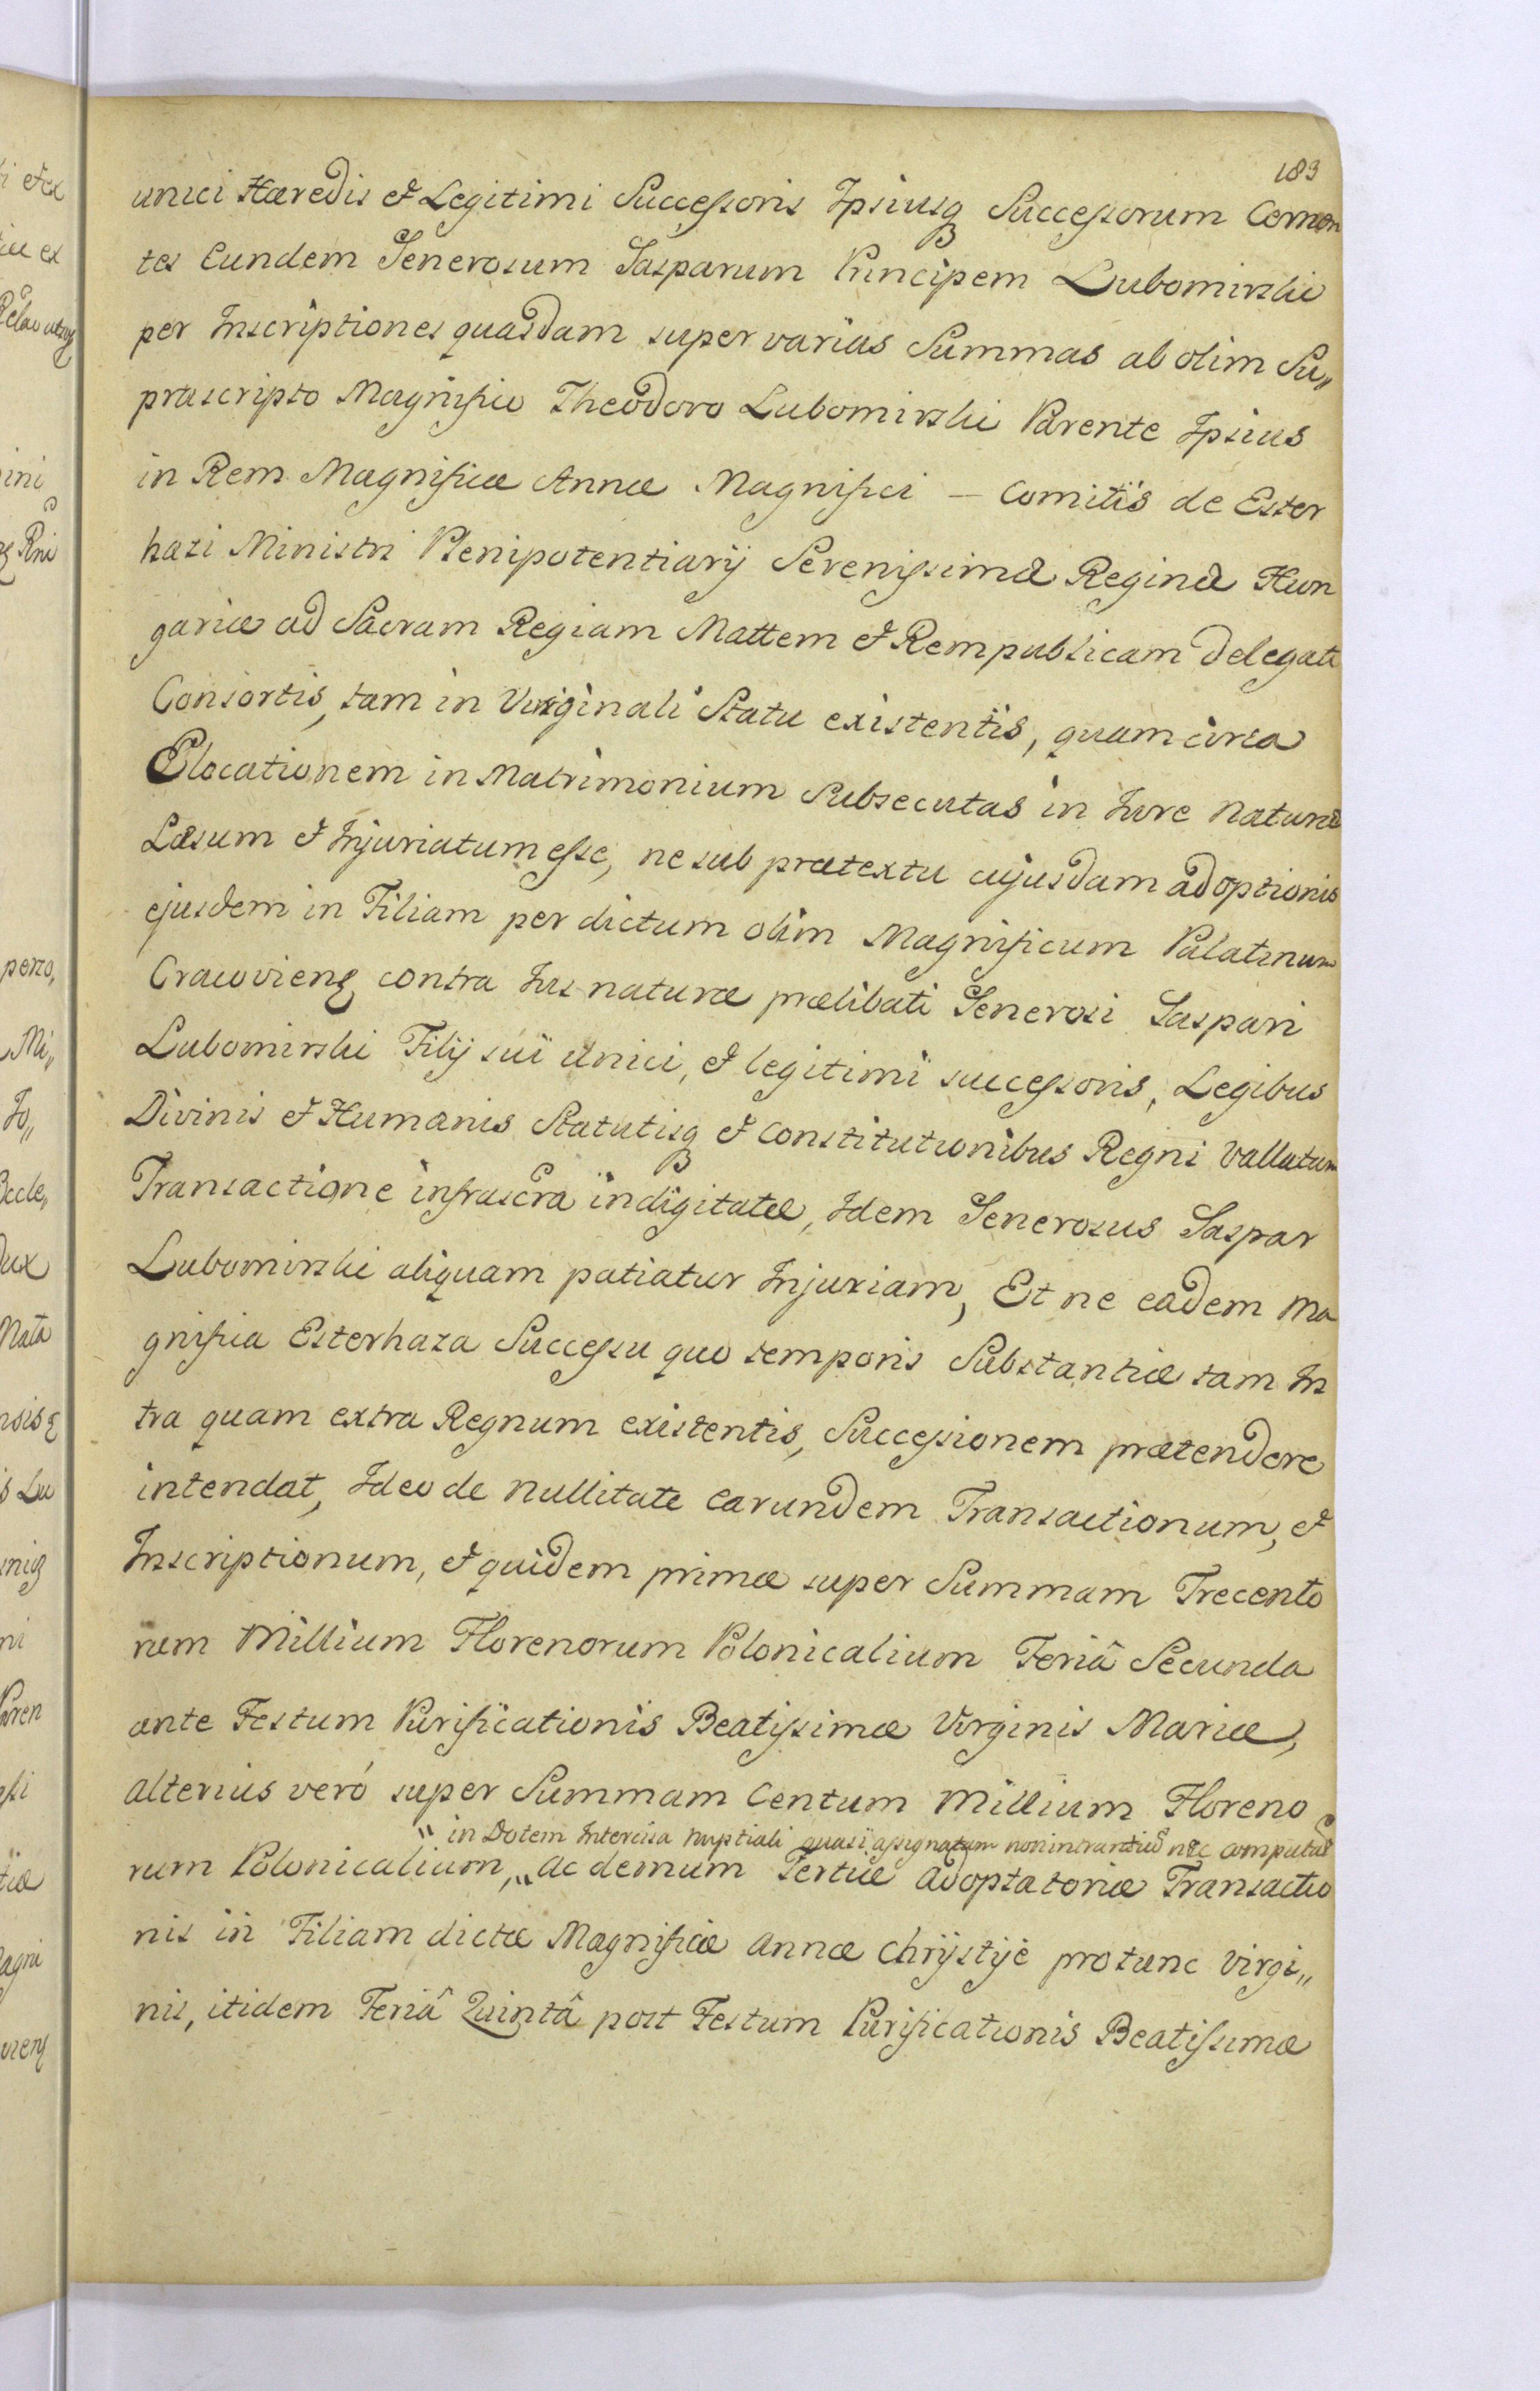 183
unici Hæredis et Legitimi Successoris Ipsiusq Successorum Cernen
tes Eundem Generosum Gasparum Principem Lubomirski
per Inscriptiones quasdam super varias Summas ab olim Su„
prascripto Magnifico Theodoro Lubomirski Parente Ipsius
in Rem Magnificæ Annæ Magnifici — Comitis de Ester
hazi Ministri Plenipotentiarij Serenissimæ Reginæ Hun
gariæ ad Sacram Regiam Mattem et Rempublicam delegati
Consortis, tam in Virginali Statu existentis, quam circa
Elocationem in Matrimonium subsecutas in Jure Naturæ
Læsum et Injuriatum esse, ne sub prætextu cujusdam adoptionis
ejusdem in Filiam per dictum olim Magnificum Palatinum
Cracovieng contra Jus naturæ prælibati Generosi Gaspari
Lubomirski Filij sui unici, et legitimi successoris, Legibus
Divinis et Humanis Statutisq et Constitutionibus Regni Vallatum
Transactione infrascra indigitatæ, Idem Generosus Gaspar
Lubomirski aliquam patiatur Injuriam, Et ne eadem Ma
gnifica Esterhaza Successu quo temporis Substantiæ tam In
tra quam extra Regnum existentis, Successionem prætendere
intendat, Ideo de Nullitate earundem Transactionum, et
Inscriptionum, et quidem primæ super Summam Trecento
rum Millium Florenorum Polonicalium Feriâ Secunda
ante Festum Purificationis Beatissimæ Virginis Mariæ,
alterius veró super Summam Centum Millium Floreno
„ in Dotem Intercisa Nuptiali quasi assignatum non intrantius nec computat
rum Polonicalium, „ ac demum Tertiæ adoptatoriæ Transactio
nis in Filiam dictæ Magnificæ Annæ Chrijstijé protunc Virgi„
nis, itidem Feriâ Quintâ post Festum Purificationis Beatissimæ